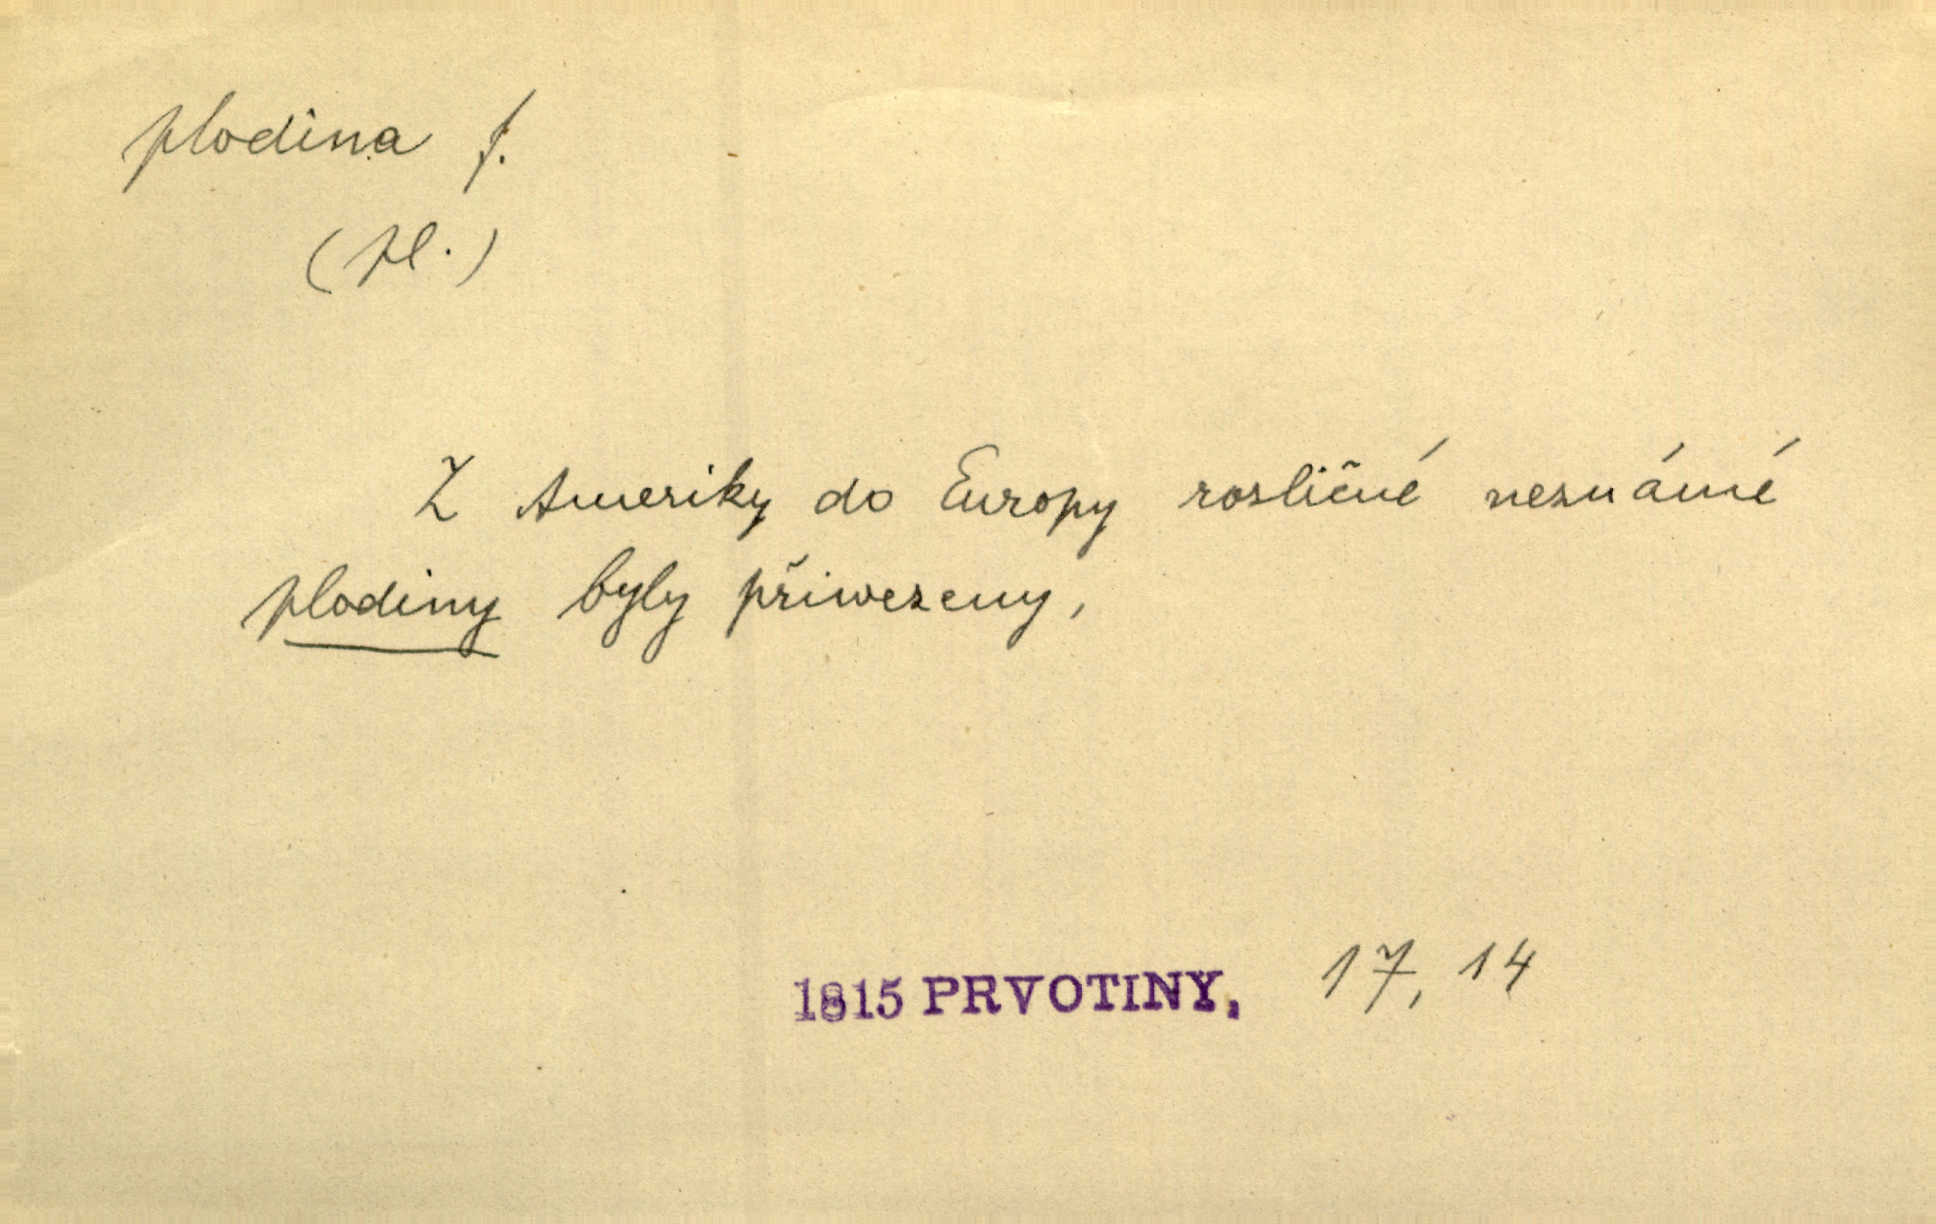 plodina f.
(pl.)
Z Ameriky do Europy rozličné neznámé
plodiny byly přiwezeny,
1815 PRVOTINY, 17, 14